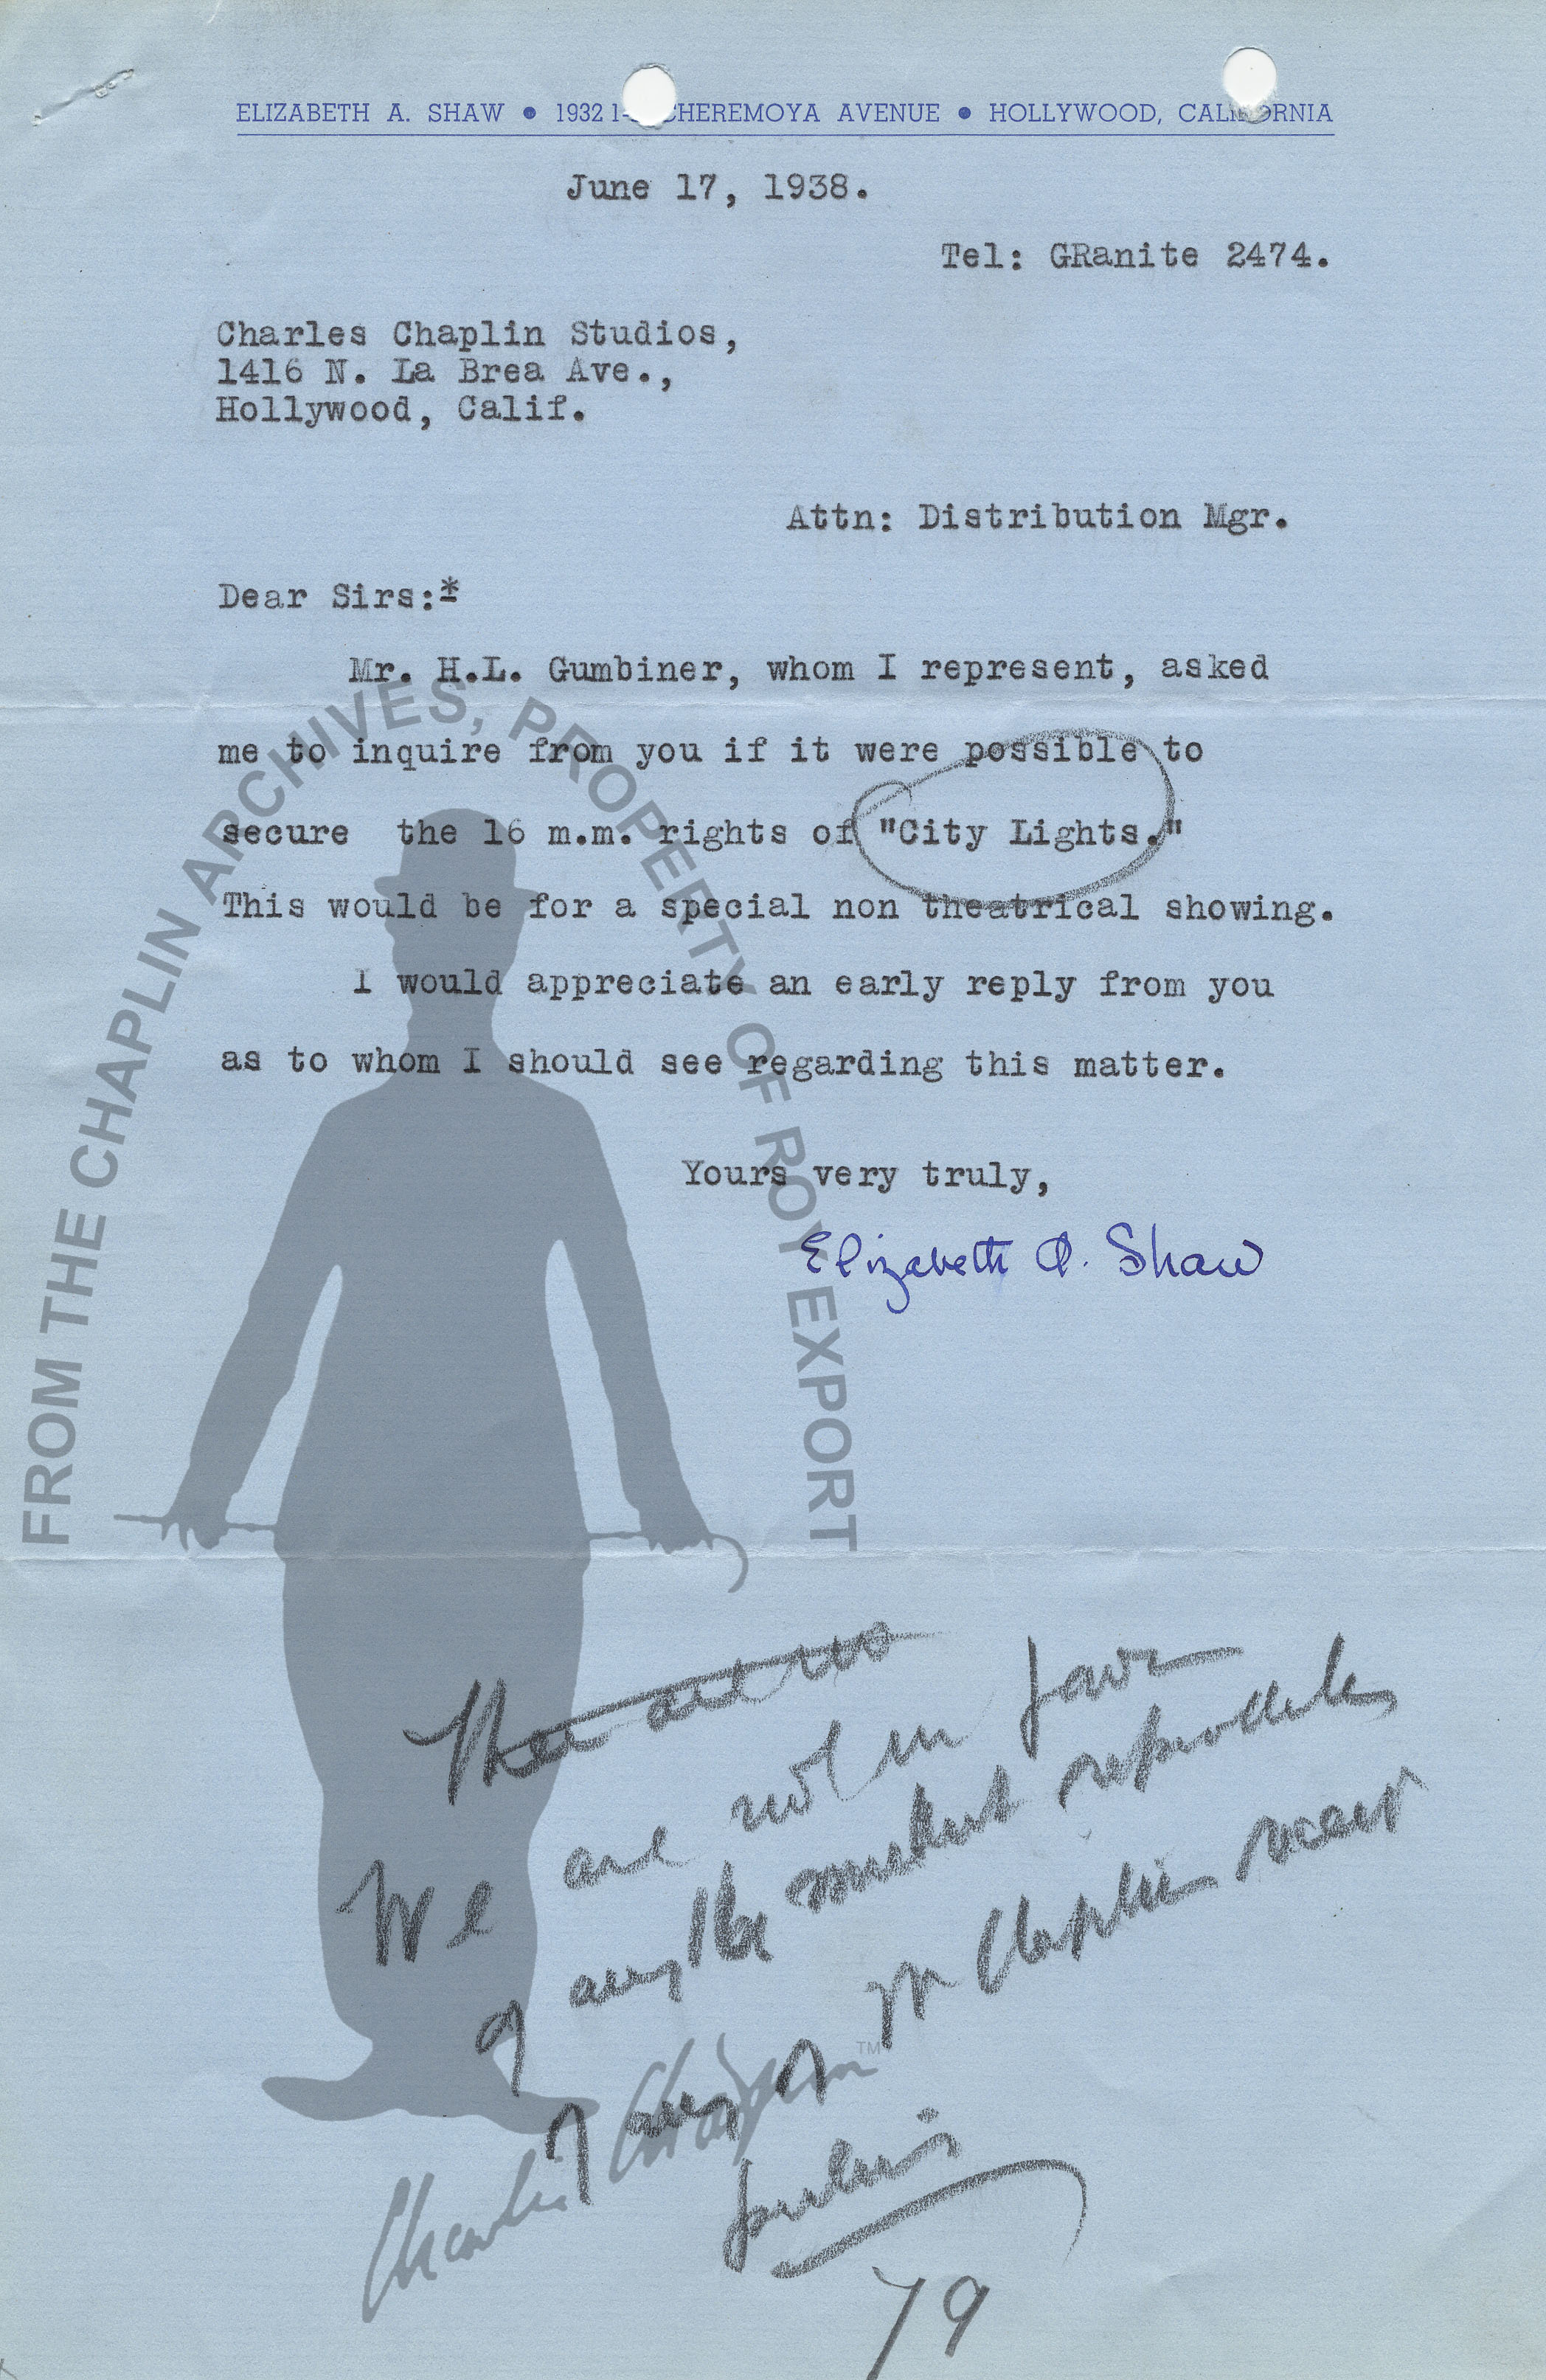 ELIZABETH A. SHAW ● 1932 1- CHEREMOYA AVENUE ● HOLLYWOOD, CALIFORNIA
June 17, 1938.
Tel: GRanite 2474.
Charles Chaplin Studios,
1416 N. La Brea Ave.,
Hollywood, Calif.
Attn: Distribution Mgr.
Dear Sirs:*
Mr. H.L. Gumbiner, whom I represent, asked
me to inquire from you if it were possible to
secure the 16 m.m. rights of "City Lights."
This would be for a special non theatrical showing.
I would appreciate an early reply from you
as to whom I should see regarding this matter.
Yours very truly,
Elizabeth A. Shaw
FROM THE CHAPLIN ARCHIVES, PROPERTY OF ROY EXPORT
We are not in favor
of any
of any of Mr Chaplin
Charlie Chaplin™
79